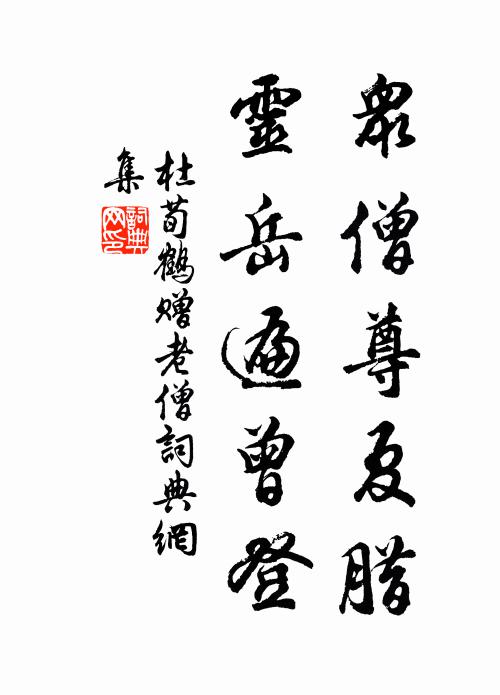 眾僧尊夏腊
靈岳遍曾登
杜荀鶴贈老僧詞典網
集
詞典
网印